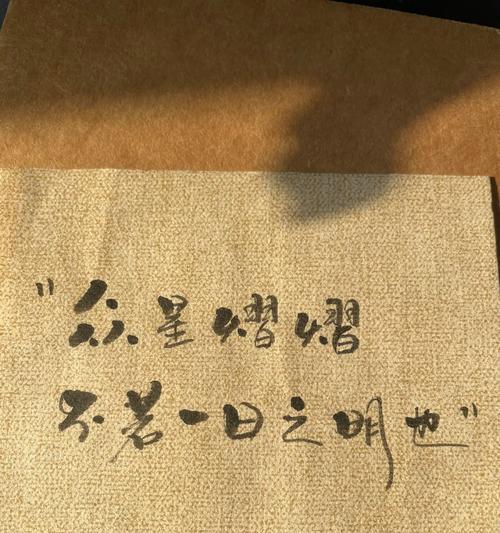 "众星熠熠
不若一日之明也"